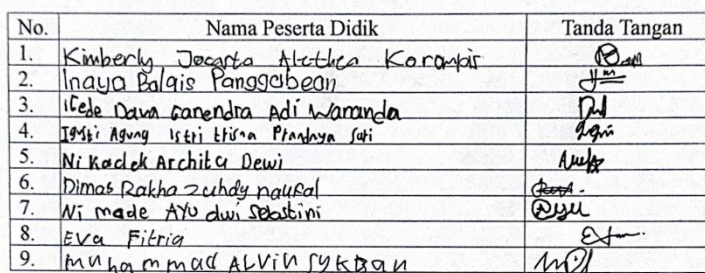 No. Nama Peserta Didik Tanda Tangan
1. Kimberly Jocasta Alethea Korompis
2. Inaya Balqis Panggabean
3. Gede Dava Ganendra Adi Wananda
4. Igusti Agung Istri Trisna Pradnya Sari
5. Ni Kadek Archita Dewi
6. Dimas Rakha zuhdy naufal
7. Ni made AYU dwi Sebastini
8. Eva Fitria
9. Muhammad ALVIN SYKBAN